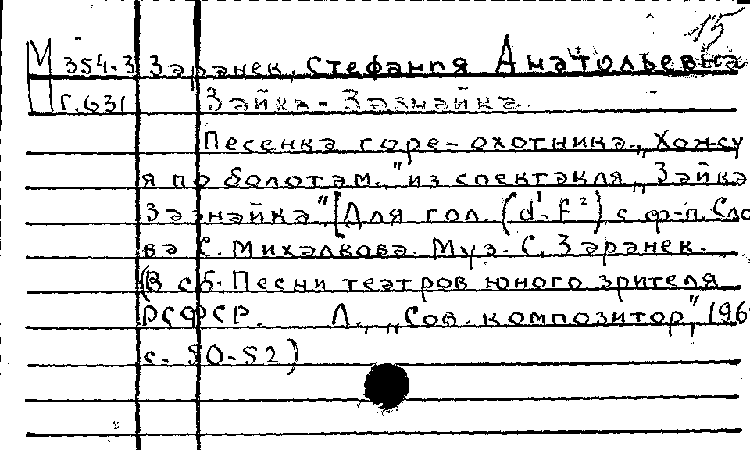 15
М 354-3 Заранек, Стефания Анатольевна
Г.631 Зайка-Зазнайка.
Песенка горе-охотника „Хожу
я по болотам" из спектакля „Зайка
Зазнайка" [Для гол. (d¹-f²) с ф-п. Сло
ва С. Михалкова. Муз. С. Заранек.
(В сб. Песни театров юного зрителя
РСФСР. Л., „Сов. композитор", 196
с. 50-52)